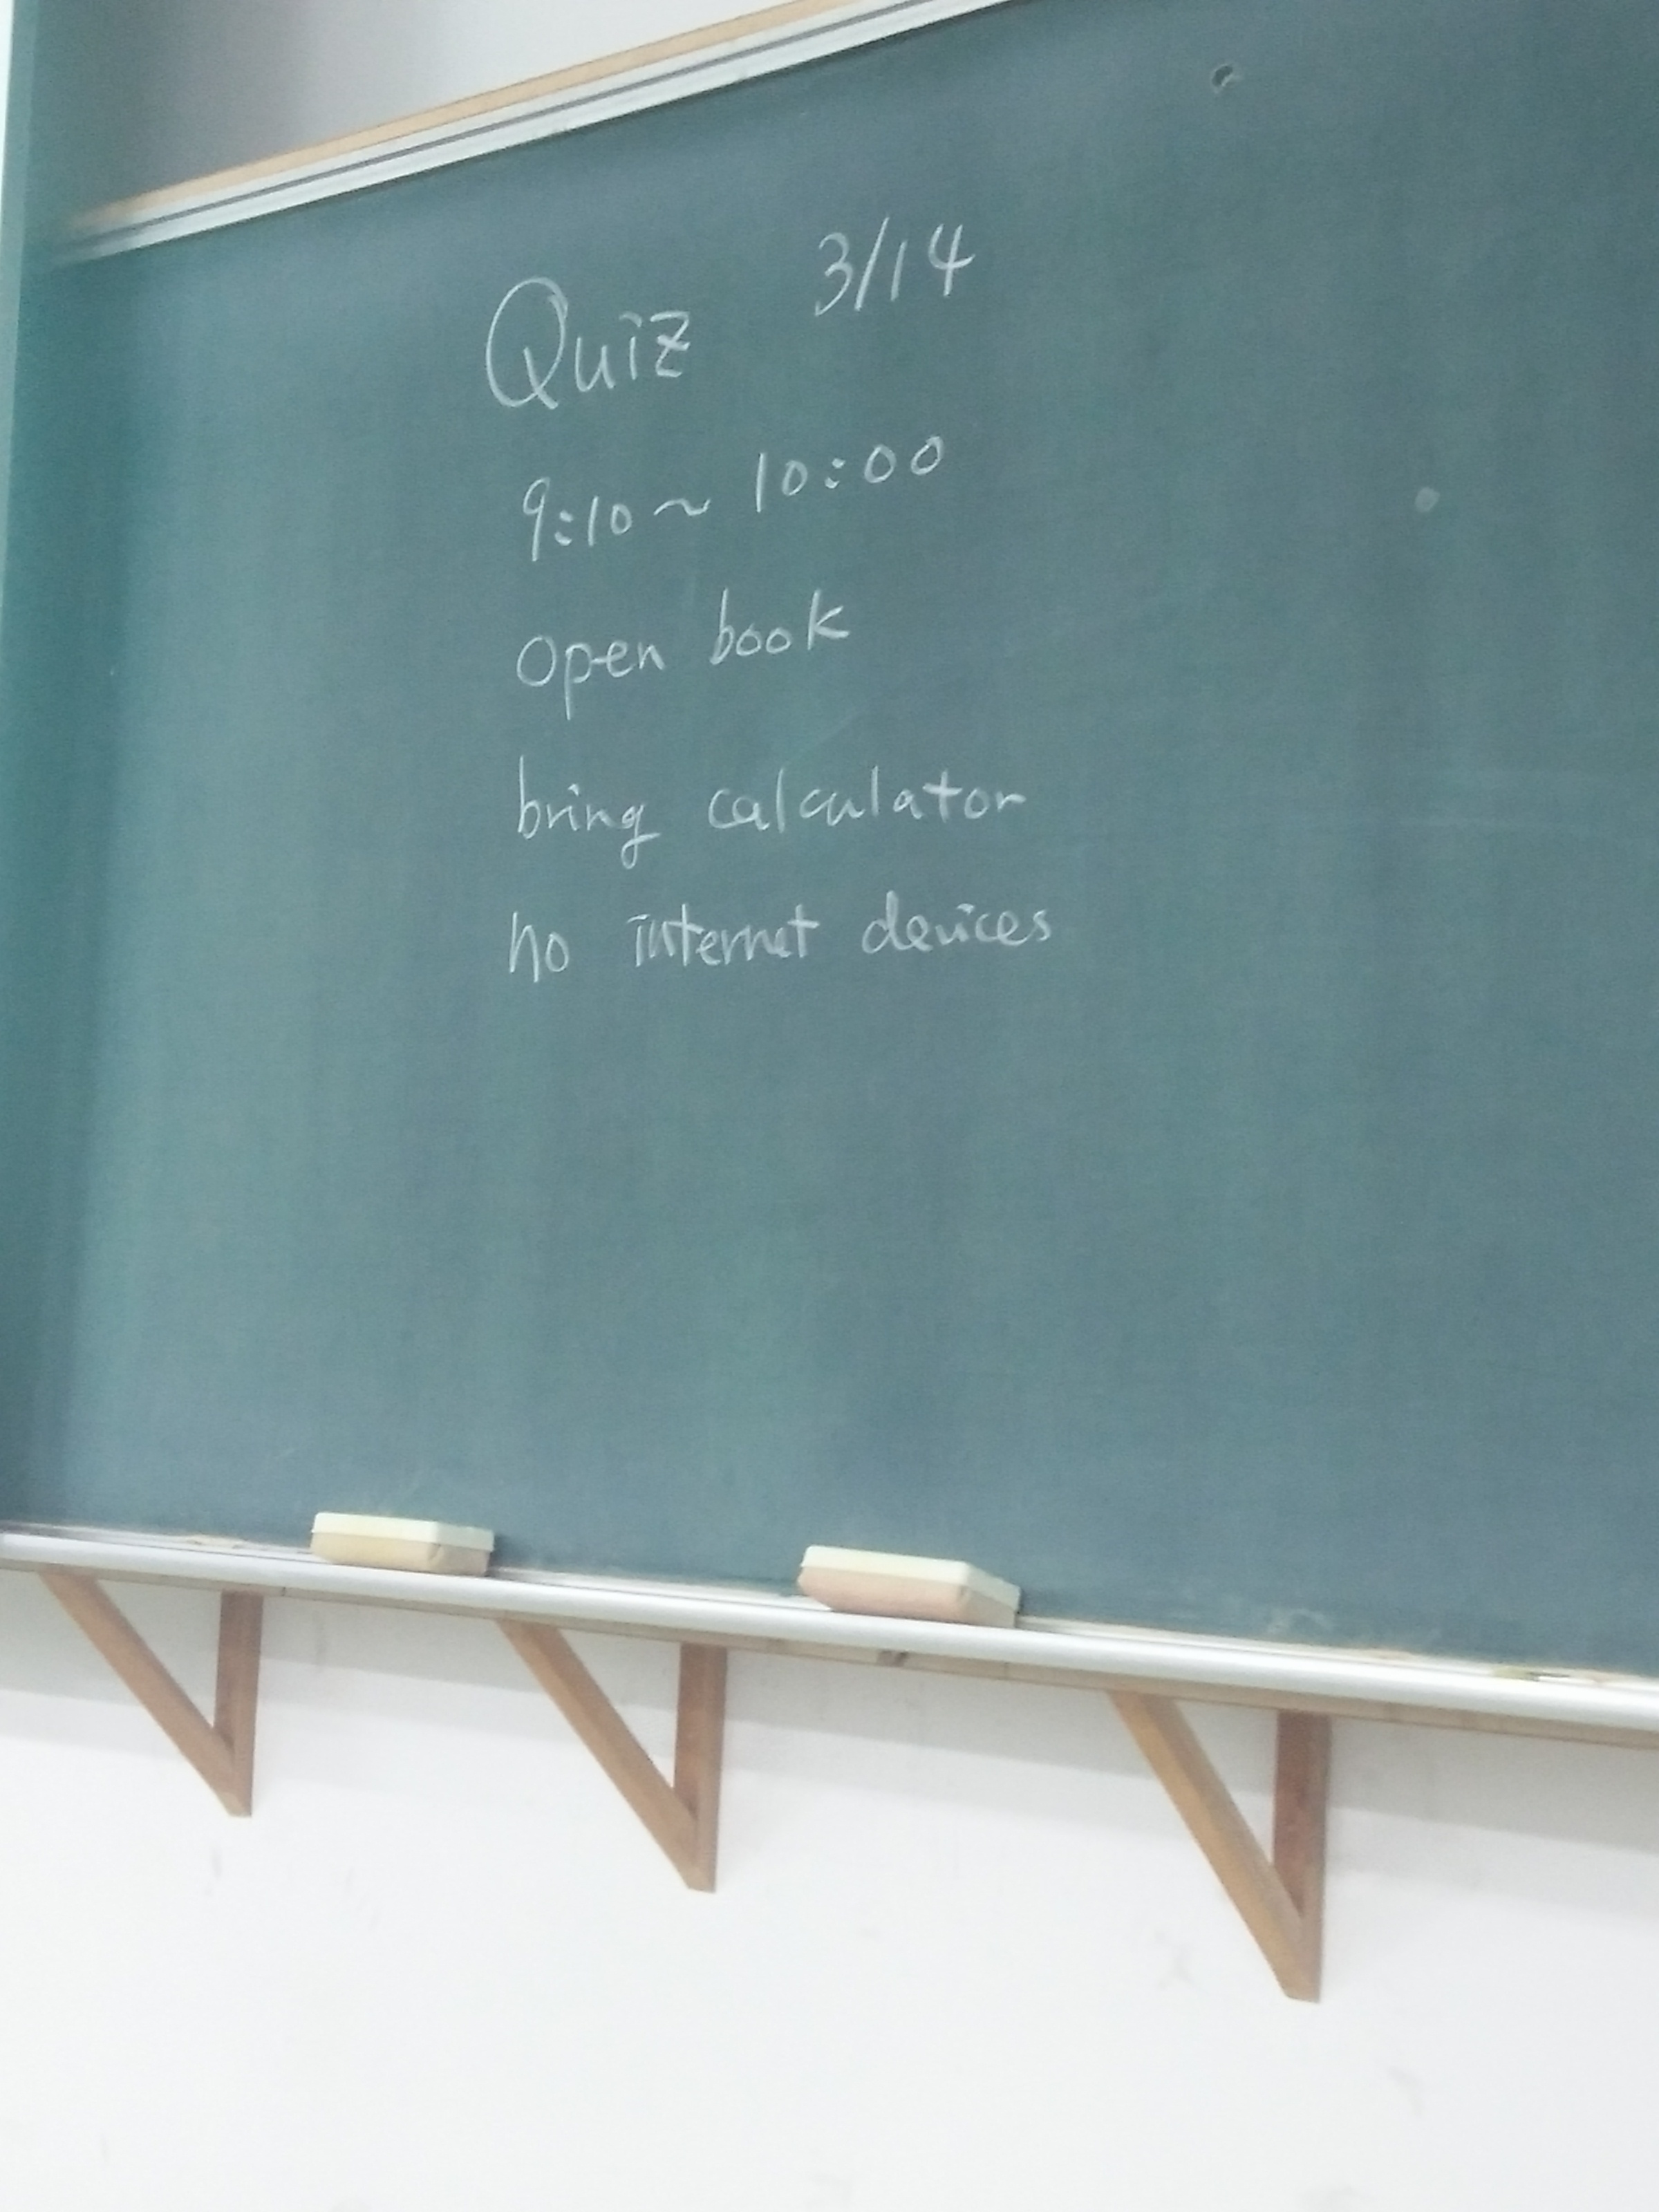 Quiz 3/14
9:10~10:00
open book
bring calculator
no internet devices